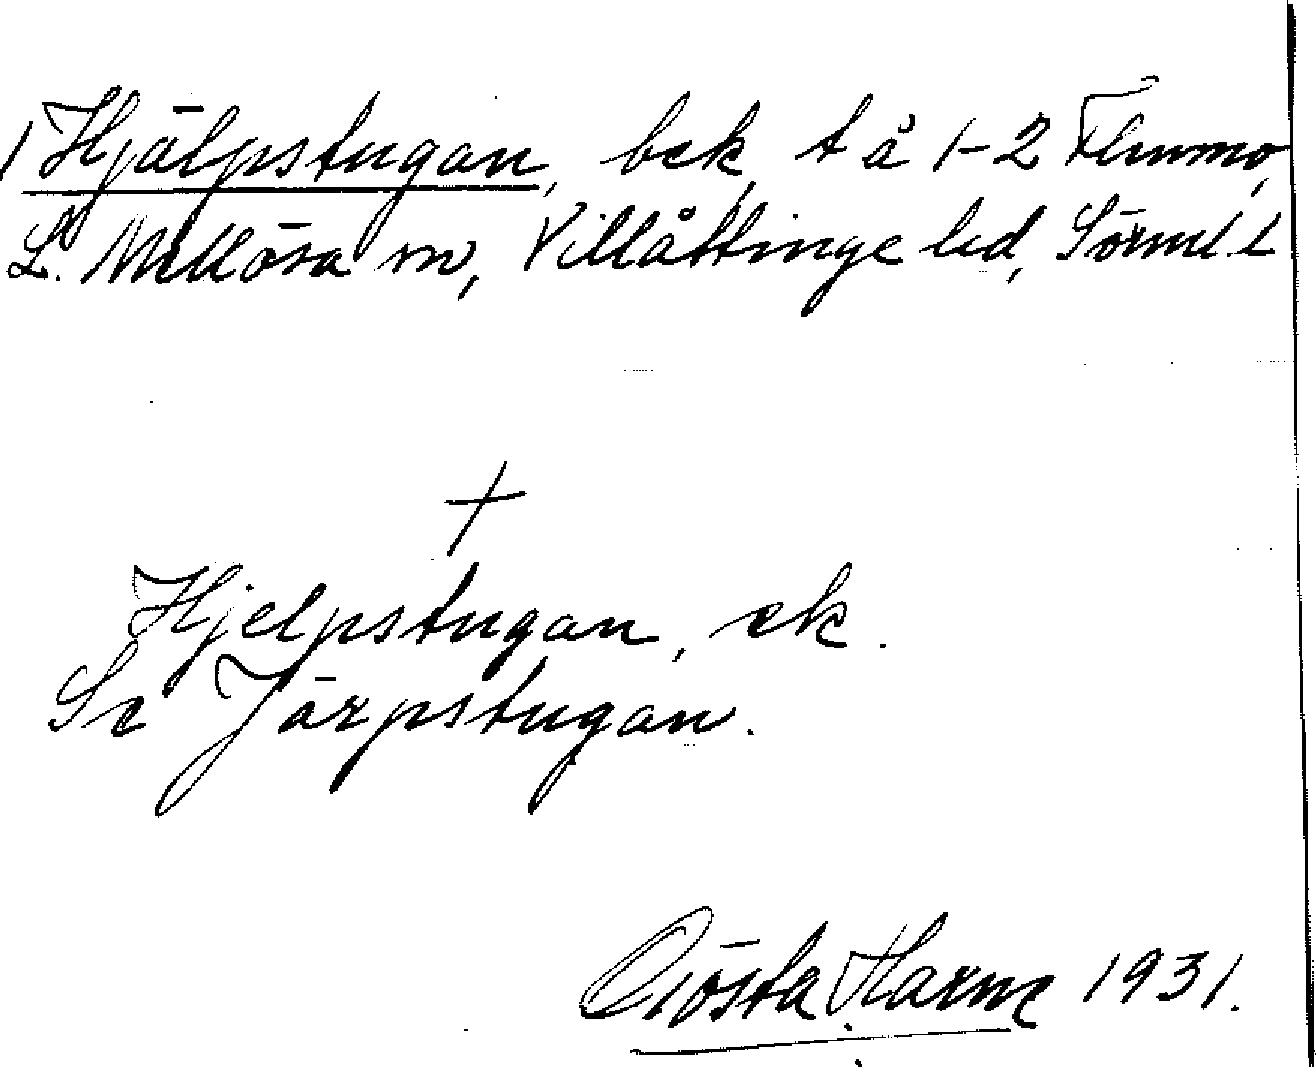 1 Hjälpstugan, bek, t å 1-2 Flinmo,
L. Mellösa sn, Villåttinge hd, Sörml. l
+
Hjelpstugan, ek.
Se Järpstugan.
Gösta Harne 1931.